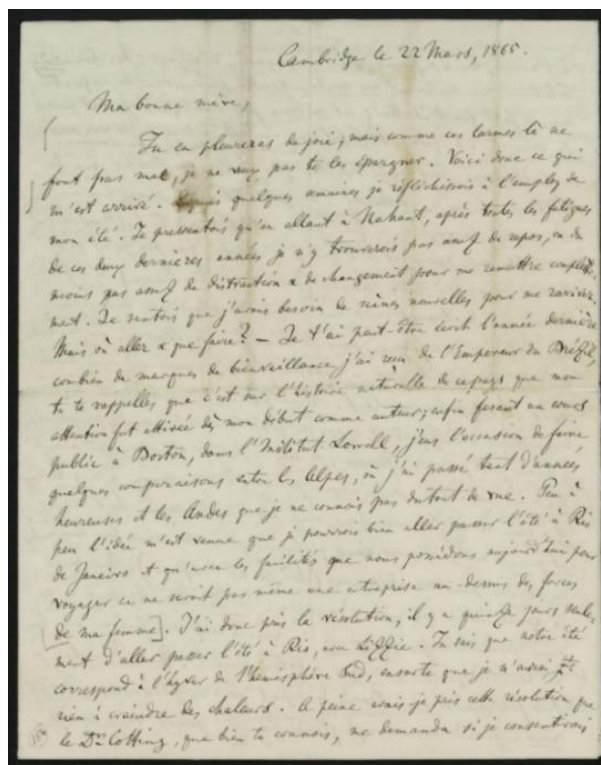 Cambridge le 22 Mars, 1865.
Ma bonne mère,
Tu en pleureras de joie; mais comme ces larmes là ne
font pas mal, je ne veux pas te les épargner. Voici donc ce qui
m'est arrivé. Depuis quelques semaines je réfléchissois à l'employ de
mon été. Je pressentois qu'en allant à Nahant, après toutes les fatigues
de ces deux dernières années je n'y trouverois pas assez de repos, ou du
moins pas assez de distraction & de changement pour me remettre complète-
ment. Je sentois que j'avois besoin de scènes nouvelles pour me raviver.
Mais où aller & que faire? — Je t'ai peut-être écrit l'année dernière
combien de marques de bienveillance j'ai reçu de l'Empereur du Brézil,
tu te rappelles que c'est sur l'histoire naturelle de ce pays que mon
attention fut attirée dès mon début comme auteur; enfin fesant un cours
public à Boston, dans l'Institut Lowell, j'eus l'occasion de faire
quelques comparaisons entre les Alpes, où j'ai passé tant d'années
heureuses et les Andes que je ne connois pas du tout de vue. Peu à
peu l'idée m'est venue que je pourrois bien aller passer l'été à Rio
de Janeiro et qu'avec les facilités que nous possédons aujourd'hui pour
voyager ce ne seroit pas même une entreprise au-dessus des forces
[de ma femme]. J'ai donc pris la résolution, il y a quinze jours seule-
ment d'aller passer l'été à Rio, avec Lizzie. Tu sais que notre été
correspond à l'hyver de l'hémisphère Sud, ensorte que je n'aurai
rien à craindre des chaleurs. A peine avois je pris cette résolution que
le Dr. Cotting, que bien tu connois, me demanda si je consentirois